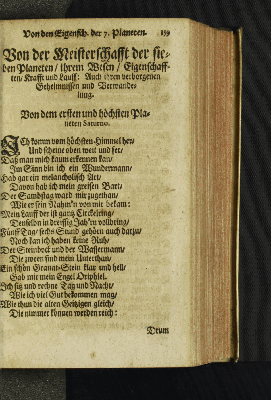 Von den Eigensch. der 7. Planeten. 159
Von der Meisterschafft der sie-
ben Planeten / ihrem Wesen / Eigenschaff-
ten / Krafft und Lauff: Auch ihren verborgenen
Geheimnissen und Verwande-
lung.
Von dem ersten und höchsten Pla-
neten Saturno.
ICh komm vom höchsten Himmel her /
Und scheine oben weit und fer /
Daß man mich kaum erkennen kan /
Im Sinn bin ich ein Wundermann /
Hab gar ein melancholisch Art /
Davon hab ich mein greisen Bart /
Der Sambstag ward mir zugethan /
Wie er sein Nahm'n von mir bekam:
Mein Lauff der ist gantz Circkelring /
Denselb'n in dreissig Jah'rn vollbring /
Fünff Tag / sechs Stund gehörn auch darzu /
Noch kan ich haben keine Ruh /
Der Steinbock und der Wassermann /
Die zween sind mein Unterthan /
Ein schön Granat-Stein klar und hell /
Gab mit mein Engel Oriphiel.
Ich sitz und rechne Tag und Nacht /
Wie ich viel Gut bekommen mag /
Wie thun die alten Geitzigen gleich /
Die nimmer können werden reich:
Drum